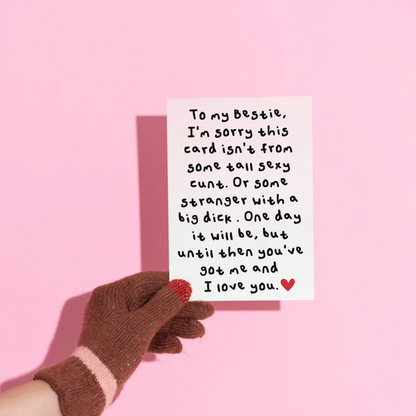 To my Bestie,
I'm sorry this
card isn't from
some tall sexy
cunt. Or some
stranger with a
big dick. One day
it will be, but
until then you've
got me and
I love you.